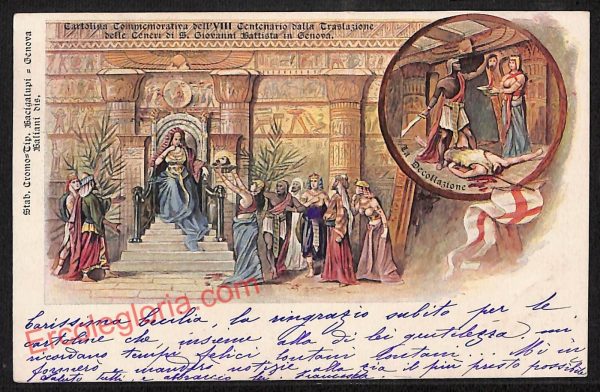 Cartolina Commemorativa dell'VIII Centenario dalla Traslazione
delle Ceneri di S. Giovanni Battista in Genova.
Stab. Cromo=Tip. Bacigalupi = Genova
Baliani dis.
La Decollazione
Ercolegloria.com
Carissima Cecilia, la ringrazio subito per le
cartoline che, insieme alla di lei gentilezza mi
ricordano tempi felici lontani lontani. Mi in
formerò e manderò notizie alla zia il più presto possibile
Saluto tutti, e abbraccio lei